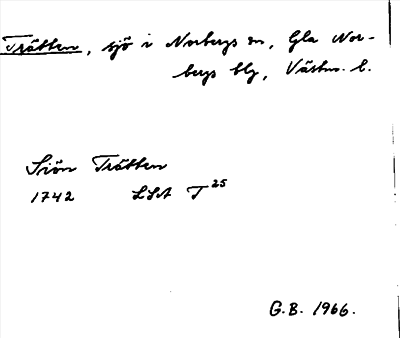 Trätten, sjö i Norbergs sn, Gla Nor-
bergs blg, Västm. l.
Siön Trätten
1742 LSA T 25
G.B. 1966.